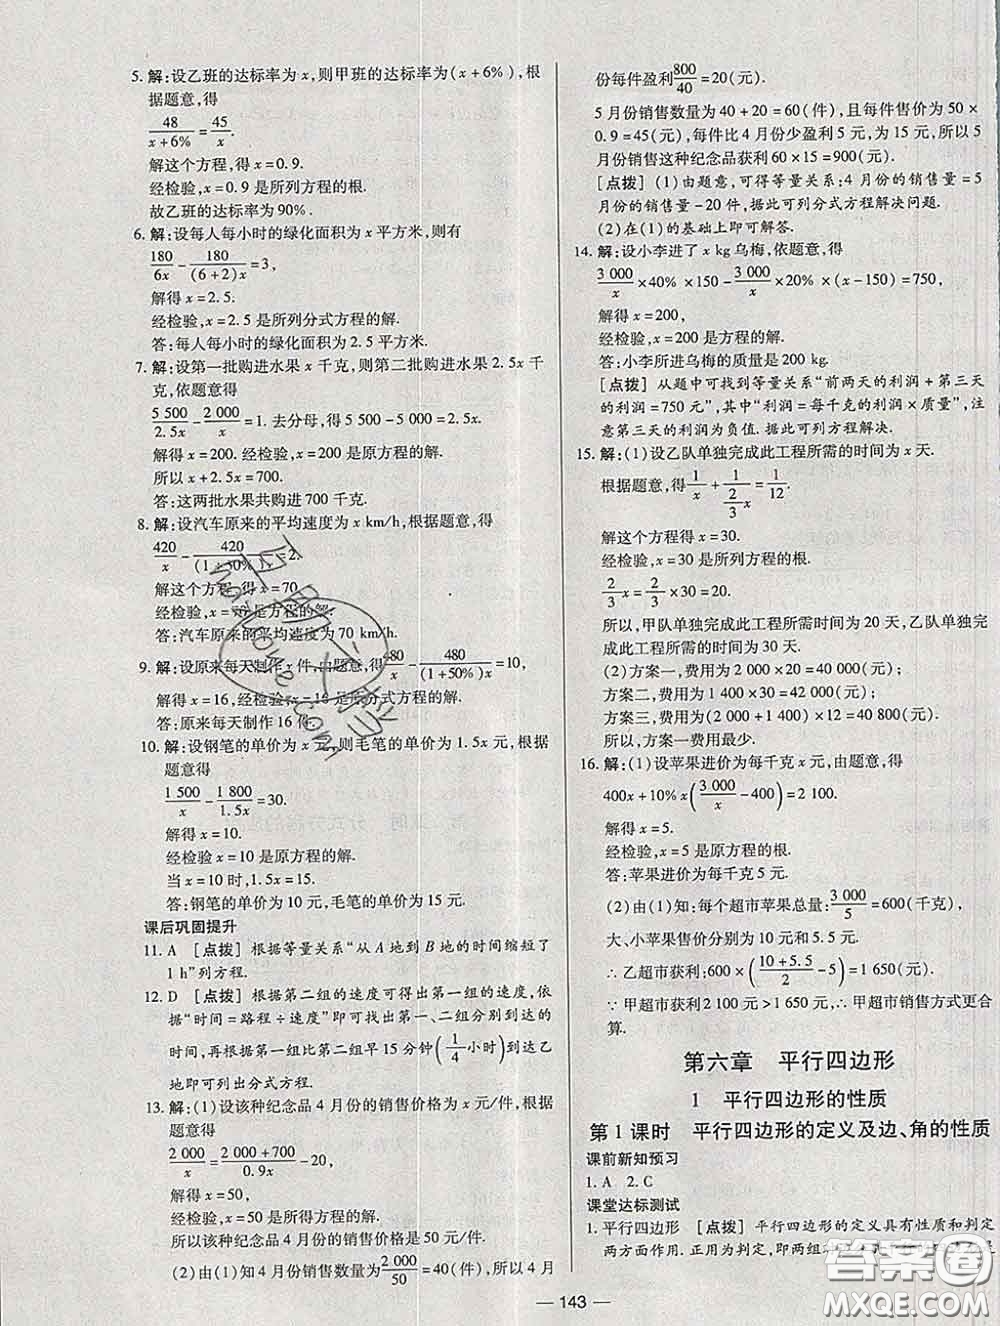 5. 解:设乙班的达标率为 x,则甲班的达标率为(x+6%),根
据题意,得
48/(x+6%)=45/x.
解这个方程,得 x=0.9.
经检验,x=0.9 是所列方程的根.
故乙班的达标率为90%.
6. 解:设每人每小时的绿化面积为 x 平方米,则有
180/6x-180/(6+2)x=3,
解得 x=2.5.
经检验,x=2.5 是所列分式方程的解.
答:每人每小时的绿化面积为 2.5 平方米.
7. 解:设第一批购进水果 x 千克,则第二批购进水果 2.5x 千
克,依题意得
5 500/2.5x-2 000/x=1. 去分母,得 5 500-5 000=2.5x.
解得 x=200. 经检验,x=200 是原方程的解.
所以 x+2.5x=700.
答:这两批水果共购进 700 千克.
8. 解:设汽车原来的平均速度为 x km/h,根据题意,得
420/x-420/(1+50%)x=2.
解这个方程,得 x=70.
经检验,x=70 是方程的解.
答:汽车原来的平均速度为 70 km/h.
9. 解:设原来每天制作 x 件,由题意,得480/x-480/(1+50%)x=10,
解得 x=16,经检验,x=16 是原分式方程的解.
答:原来每天制作 16 件.
10. 解:设钢笔的单价为 x 元,则毛笔的单价为 1.5x 元,根据
题意得
1 500/x-1 800/1.5x=30.
解得 x=10.
经检验 x=10 是原方程的解.
当 x=10 时,1.5x=15.
答:钢笔的单价为 10 元,毛笔的单价为 15 元.
课后巩固提升
11. A [点拨] 根据等量关系“从 A 地到 B 地的时间缩短了
1 h”列方程.
12. D [点拨] 根据第二组的速度可得出第一组的速度,依
据“时间=路程÷速度”即可找出第一、二组分别到达的
时间,再根据第一组比第二组早 15 分钟(1/4小时)到达乙
地即可列出分式方程.
13. 解:(1)设该种纪念品 4 月份的销售价格为 x 元/件,根据
题意得
2 000/x=(2 000+700)/0.9x-20,
解得 x=50,
经检验,x=50 是所得方程的解.
所以该种纪念品 4 月份的销售价格是 50 元/件.
(2)由(1)知 4 月份销售数量为2 000/50=40(件),所以 4 月
份每件盈利800/40=20(元).
5 月份销售数量为 40+20=60(件),且每件售价为 50×
0.9=45(元),每件比 4 月份少盈利 5 元,为 15 元,所以 5
月份销售这种纪念品获利 60×15=900(元).
[点拨] (1)由题意,可得等量关系:4 月份的销售量=5
月份的销售量-20 件,据此可列分式方程解决问题.
(2)在(1)的基础上即可解答.
14. 解:设小李进了 x kg 乌梅,依题意,得
3 000/x×40%×150-3 000/x×20%×(x-150)=750,
解得 x=200,
经检验,x=200 是方程的解.
答:小李所进乌梅的质量是 200 kg.
[点拨] 从题中可找到等量关系“前两天的利润+第三天
的利润=750元”,其中“利润=每千克的利润×质量”,注
意第三天的利润为负值. 据此可列方程解决.
15. 解:(1)设乙队单独完成此工程所需的时间为 x 天.
根据题意,得1/x+1/(2/3 x)=1/12.
解这个方程,得 x=30.
经检验,x=30 是所列方程的根.
2/3 x=2/3×30=20.
所以,甲队单独完成此工程所需时间为 20 天,乙队单独完
成此工程所需的时间为 30 天.
(2)方案一,费用为 2 000×20=40 000(元);
方案二,费用为 1 400×30=42 000(元);
方案三,费用为(2 000+1 400)×12=40 800(元).
所以,方案一费用最少.
16. 解:(1)设苹果进价为每千克 x 元,由题意,得
400x+10%x(3 000/x-400)=2 100.
解得 x=5.
经检验,x=5 是原方程的解.
答:苹果进价为每千克 5 元.
(2)由(1)知:每个超市苹果总量:3 000/5=600(千克),
大、小苹果售价分别为 10 元和 5.5 元.
∴乙超市获利:600×((10+5.5)/2-5)=1 650(元).
∵甲超市获利2 100 元>1 650 元,∴甲超市销售方式更合
算.
第六章 平行四边形
1 平行四边形的性质
第 1 课时 平行四边形的定义及边、角的性质
课前新知预习
1. A 2. C
课堂达标测试
1. 平行四边形 [点拨] 平行四边形的定义具有性质和判定
两方面作用. 正用为判定,即两组
— 143 —
答案圈
MXQE.COM